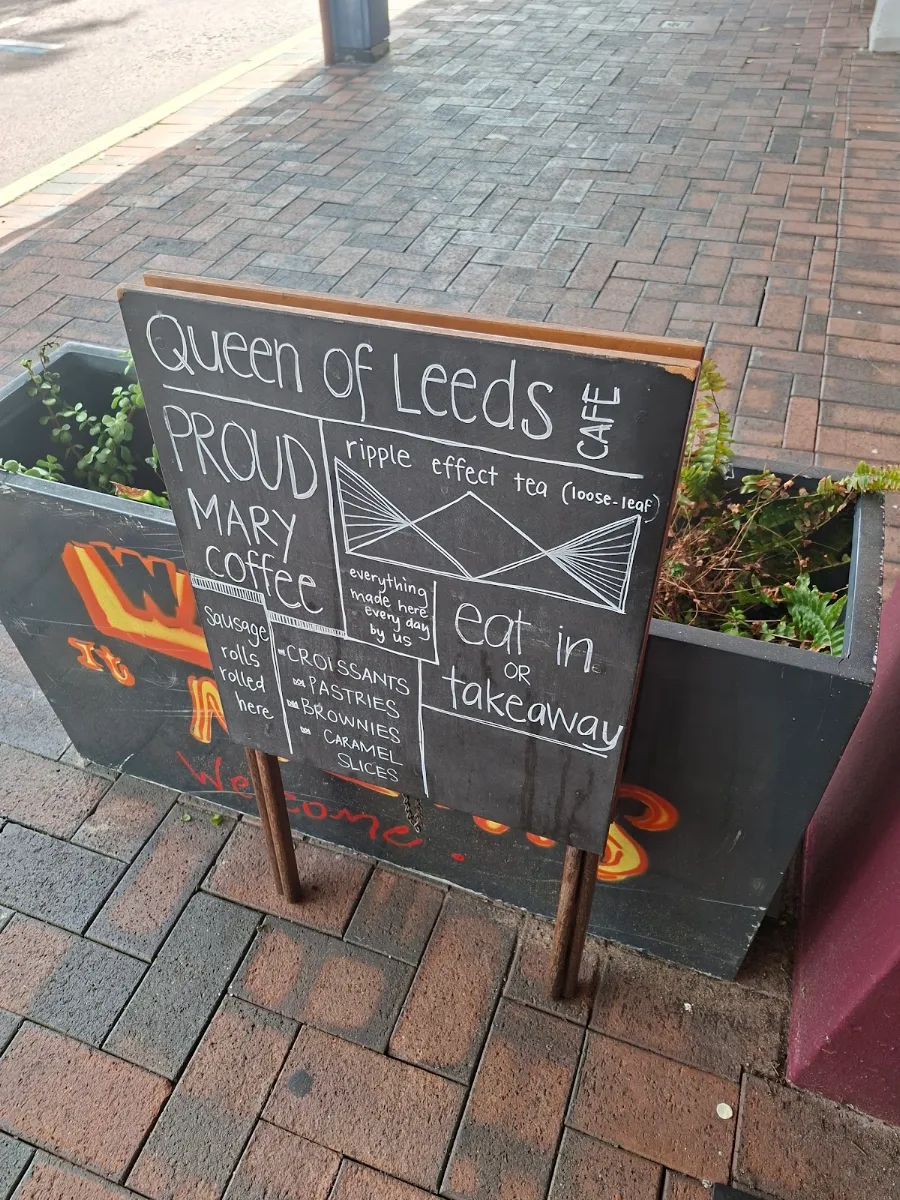 Queen of Leeds CAFE
PROUD
MARY
coffee
ripple effect tea (loose-leaf)
everything
made here
every day
by us
eat in
OR
takeaway
Sausage
rolls
rolled
here
CROISSANTS
PASTRIES
BROWNIES
CARAMEL
SLICES
It
Welcome.